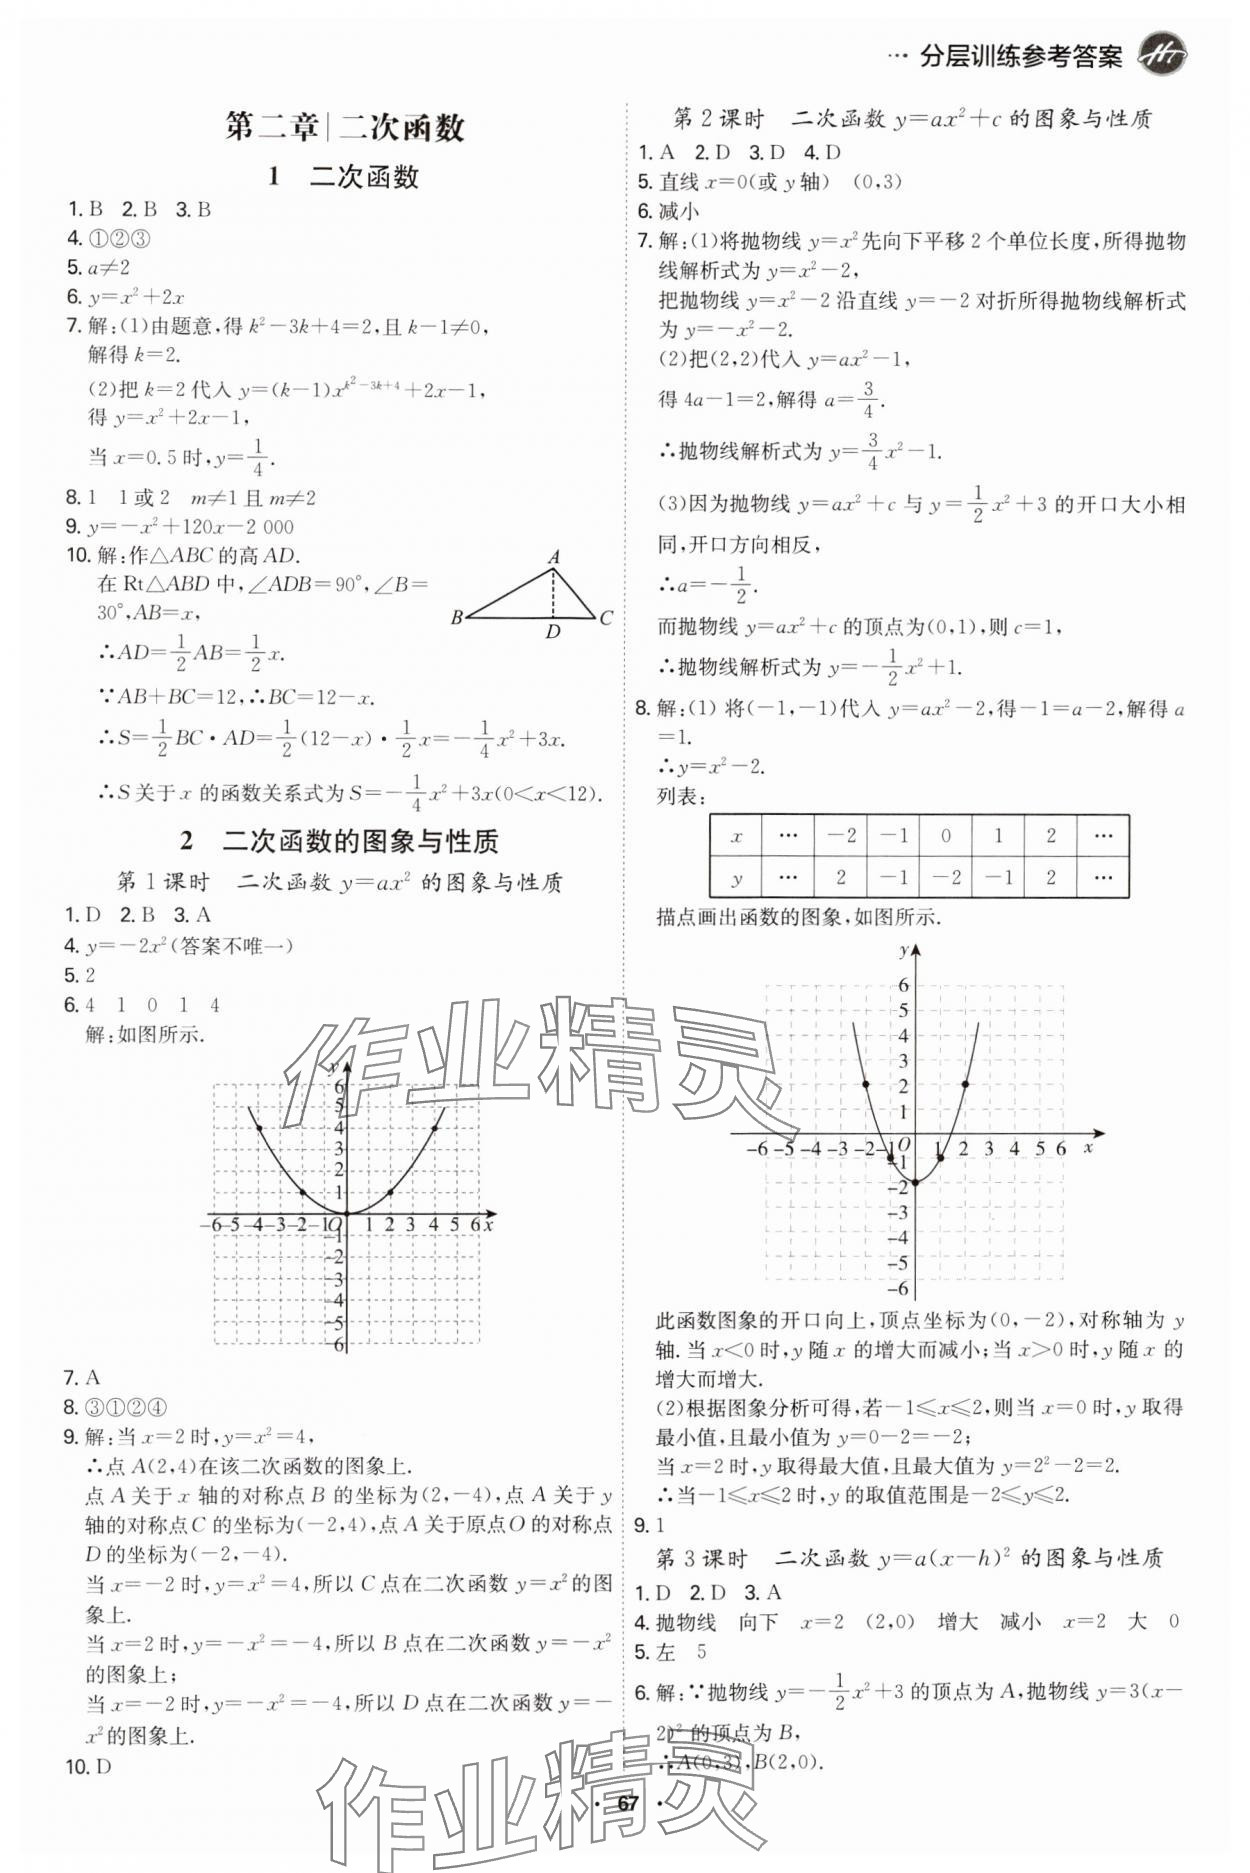 ··· 分层训练参考答案
第二章 | 二次函数
1 二次函数
1. B 2. B 3. B
4. ①②③
5. a≠2
6. y=x²+2x
7. 解:(1)由题意,得 k²-3k+4=2,且 k-1≠0,
解得 k=2.
(2)把 k=2 代入 y=(k-1)x^{k²-3k+4}+2x-1,
得 y=x²+2x-1,
当 x=0.5 时,y=1/4.
8. 1 1 或 2 m≠1 且 m≠2
9. y=-x²+120x-2 000
10. 解:作△ABC 的高 AD.
在 Rt△ABD 中,∠ADB=90°,∠B=
30°,AB=x,
∴AD=1/2 AB=1/2 x.
∵AB+BC=12,∴BC=12-x.
∴S=1/2 BC·AD=1/2 (12-x)·1/2 x=-1/4 x²+3x.
∴S 关于 x 的函数关系式为 S=-1/4 x²+3x(0<x<12).
A
B
D
C
2 二次函数的图象与性质
第 1 课时 二次函数 y=ax² 的图象与性质
1. D 2. B 3. A
4. y=-2x²(答案不唯一)
5. 2
6. 4 1 0 1 4
解:如图所示.
y
6
5
4
3
2
1
-6 -5 -4 -3 -2 -1 O 1 2 3 4 5 6 x
-1
-2
-3
-4
-5
-6
7. A
8. ③①②④
9. 解:当 x=2 时,y=x²=4,
∴点 A(2,4)在该二次函数的图象上.
点 A 关于 x 轴的对称点 B 的坐标为(2,-4),点 A 关于 y
轴的对称点 C 的坐标为(-2,4),点 A 关于原点 O 的对称点
D 的坐标为(-2,-4).
当 x=-2 时,y=x²=4,所以 C 点在二次函数 y=x²的图
象上.
当 x=2 时,y=-x²=-4,所以 B 点在二次函数 y=-x²
的图象上;
当 x=-2 时,y=-x²=-4,所以 D 点在二次函数 y=-
x²的图象上.
10. D
第 2 课时 二次函数 y=ax²+c 的图象与性质
1. A 2. D 3. D 4. D
5. 直线 x=0(或 y 轴) (0,3)
6. 减小
7. 解:(1)将抛物线 y=x²先向下平移 2 个单位长度,所得抛物
线解析式为 y=x²-2,
把抛物线 y=x²-2 沿直线 y=-2 对折所得抛物线解析式
为 y=-x²-2.
(2)把(2,2)代入 y=ax²-1,
得 4a-1=2,解得 a=3/4.
∴抛物线解析式为 y=3/4 x²-1.
(3)因为抛物线 y=ax²+c 与 y=1/2 x²+3 的开口大小相
同,开口方向相反,
∴a=-1/2.
而抛物线 y=ax²+c 的顶点为(0,1),则 c=1,
∴抛物线解析式为 y=-1/2 x²+1.
8. 解:(1) 将(-1,-1)代入 y=ax²-2,得-1=a-2,解得 a
=1.
∴y=x²-2.
列表:
x ··· -2 -1 0 1 2 ···
y ··· 2 -1 -2 -1 2 ···
描点画出函数的图象,如图所示.
y
6
5
4
3
2
1
-6 -5 -4 -3 -2 -1 O 1 2 3 4 5 6 x
-1
-2
-3
-4
-5
-6
此函数图象的开口向上,顶点坐标为(0,-2),对称轴为 y
轴.当 x<0 时,y 随 x 的增大而减小;当 x>0 时,y 随 x 的
增大而增大.
(2)根据图象分析可得,若-1≤x≤2,则当 x=0 时,y 取得
最小值,且最小值为 y=0-2=-2;
当 x=2 时,y 取得最大值,且最大值为 y=2²-2=2.
∴当-1≤x≤2 时,y 的取值范围是-2≤y≤2.
9. 1
第 3 课时 二次函数 y=a(x-h)² 的图象与性质
1. D 2. D 3. A
4. 抛物线 向下 x=2 (2,0) 增大 减小 x=2 大 0
5. 左 5
6. 解:∵抛物线 y=-1/2 x²+3 的顶点为 A,抛物线 y=3(x-
2)² 的顶点为 B,
∴A(0,3),B(2,0).
· 67 ·
作业精灵
作业精灵